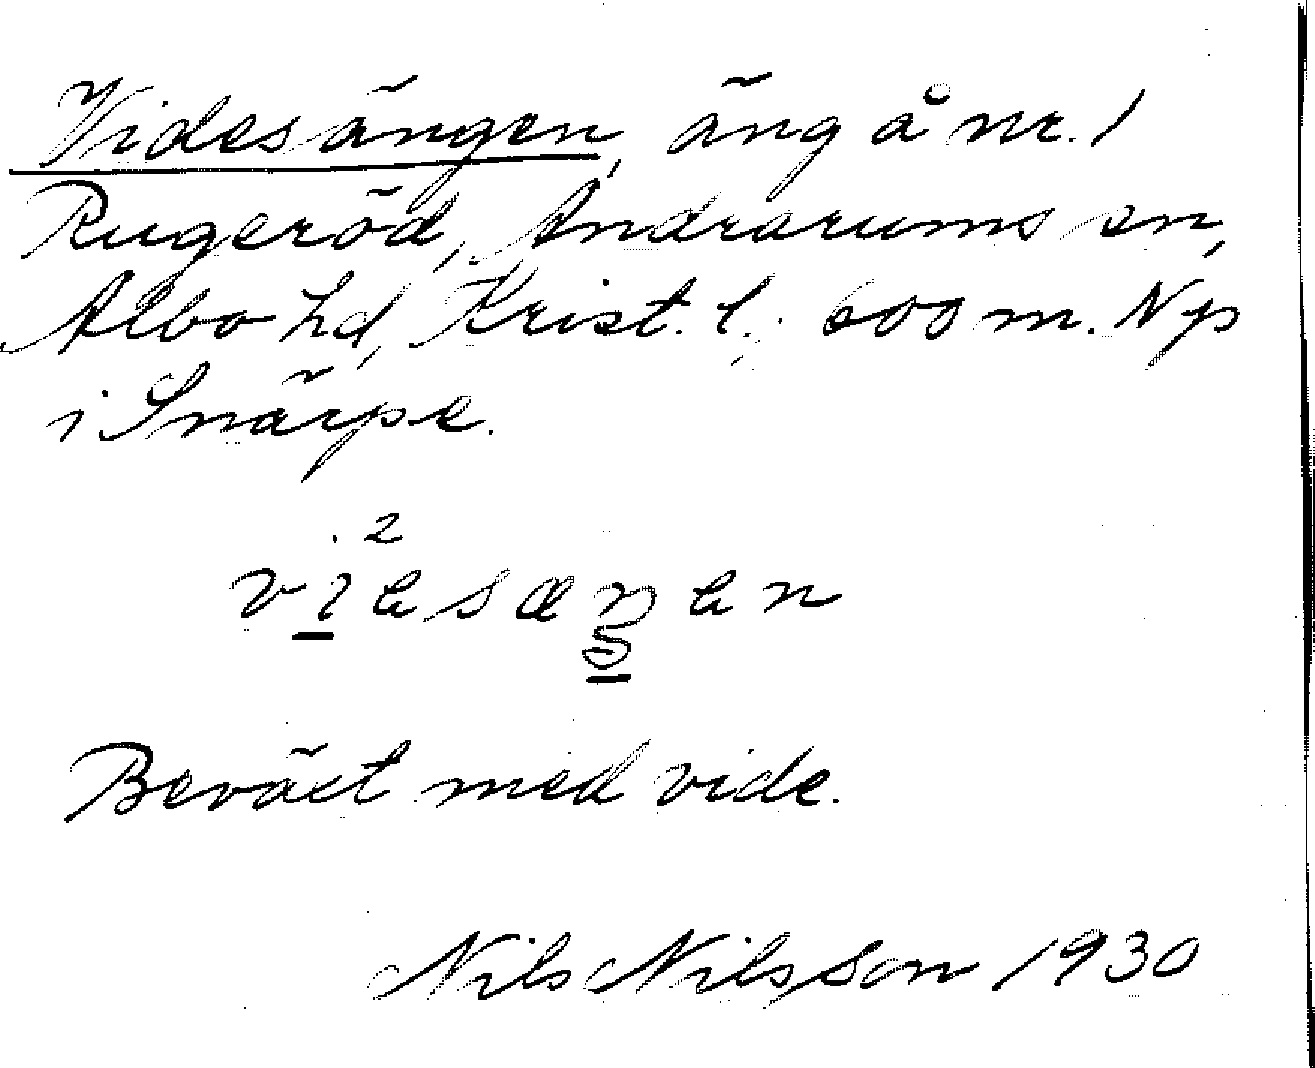 Videsängen, äng å nr. 1
Rugeröd, Andrarums sn,
Albo hd, Krist. l. 600 m. N p
i Snärpe.
Beväxt med vide.
Nils Nilsson 1930